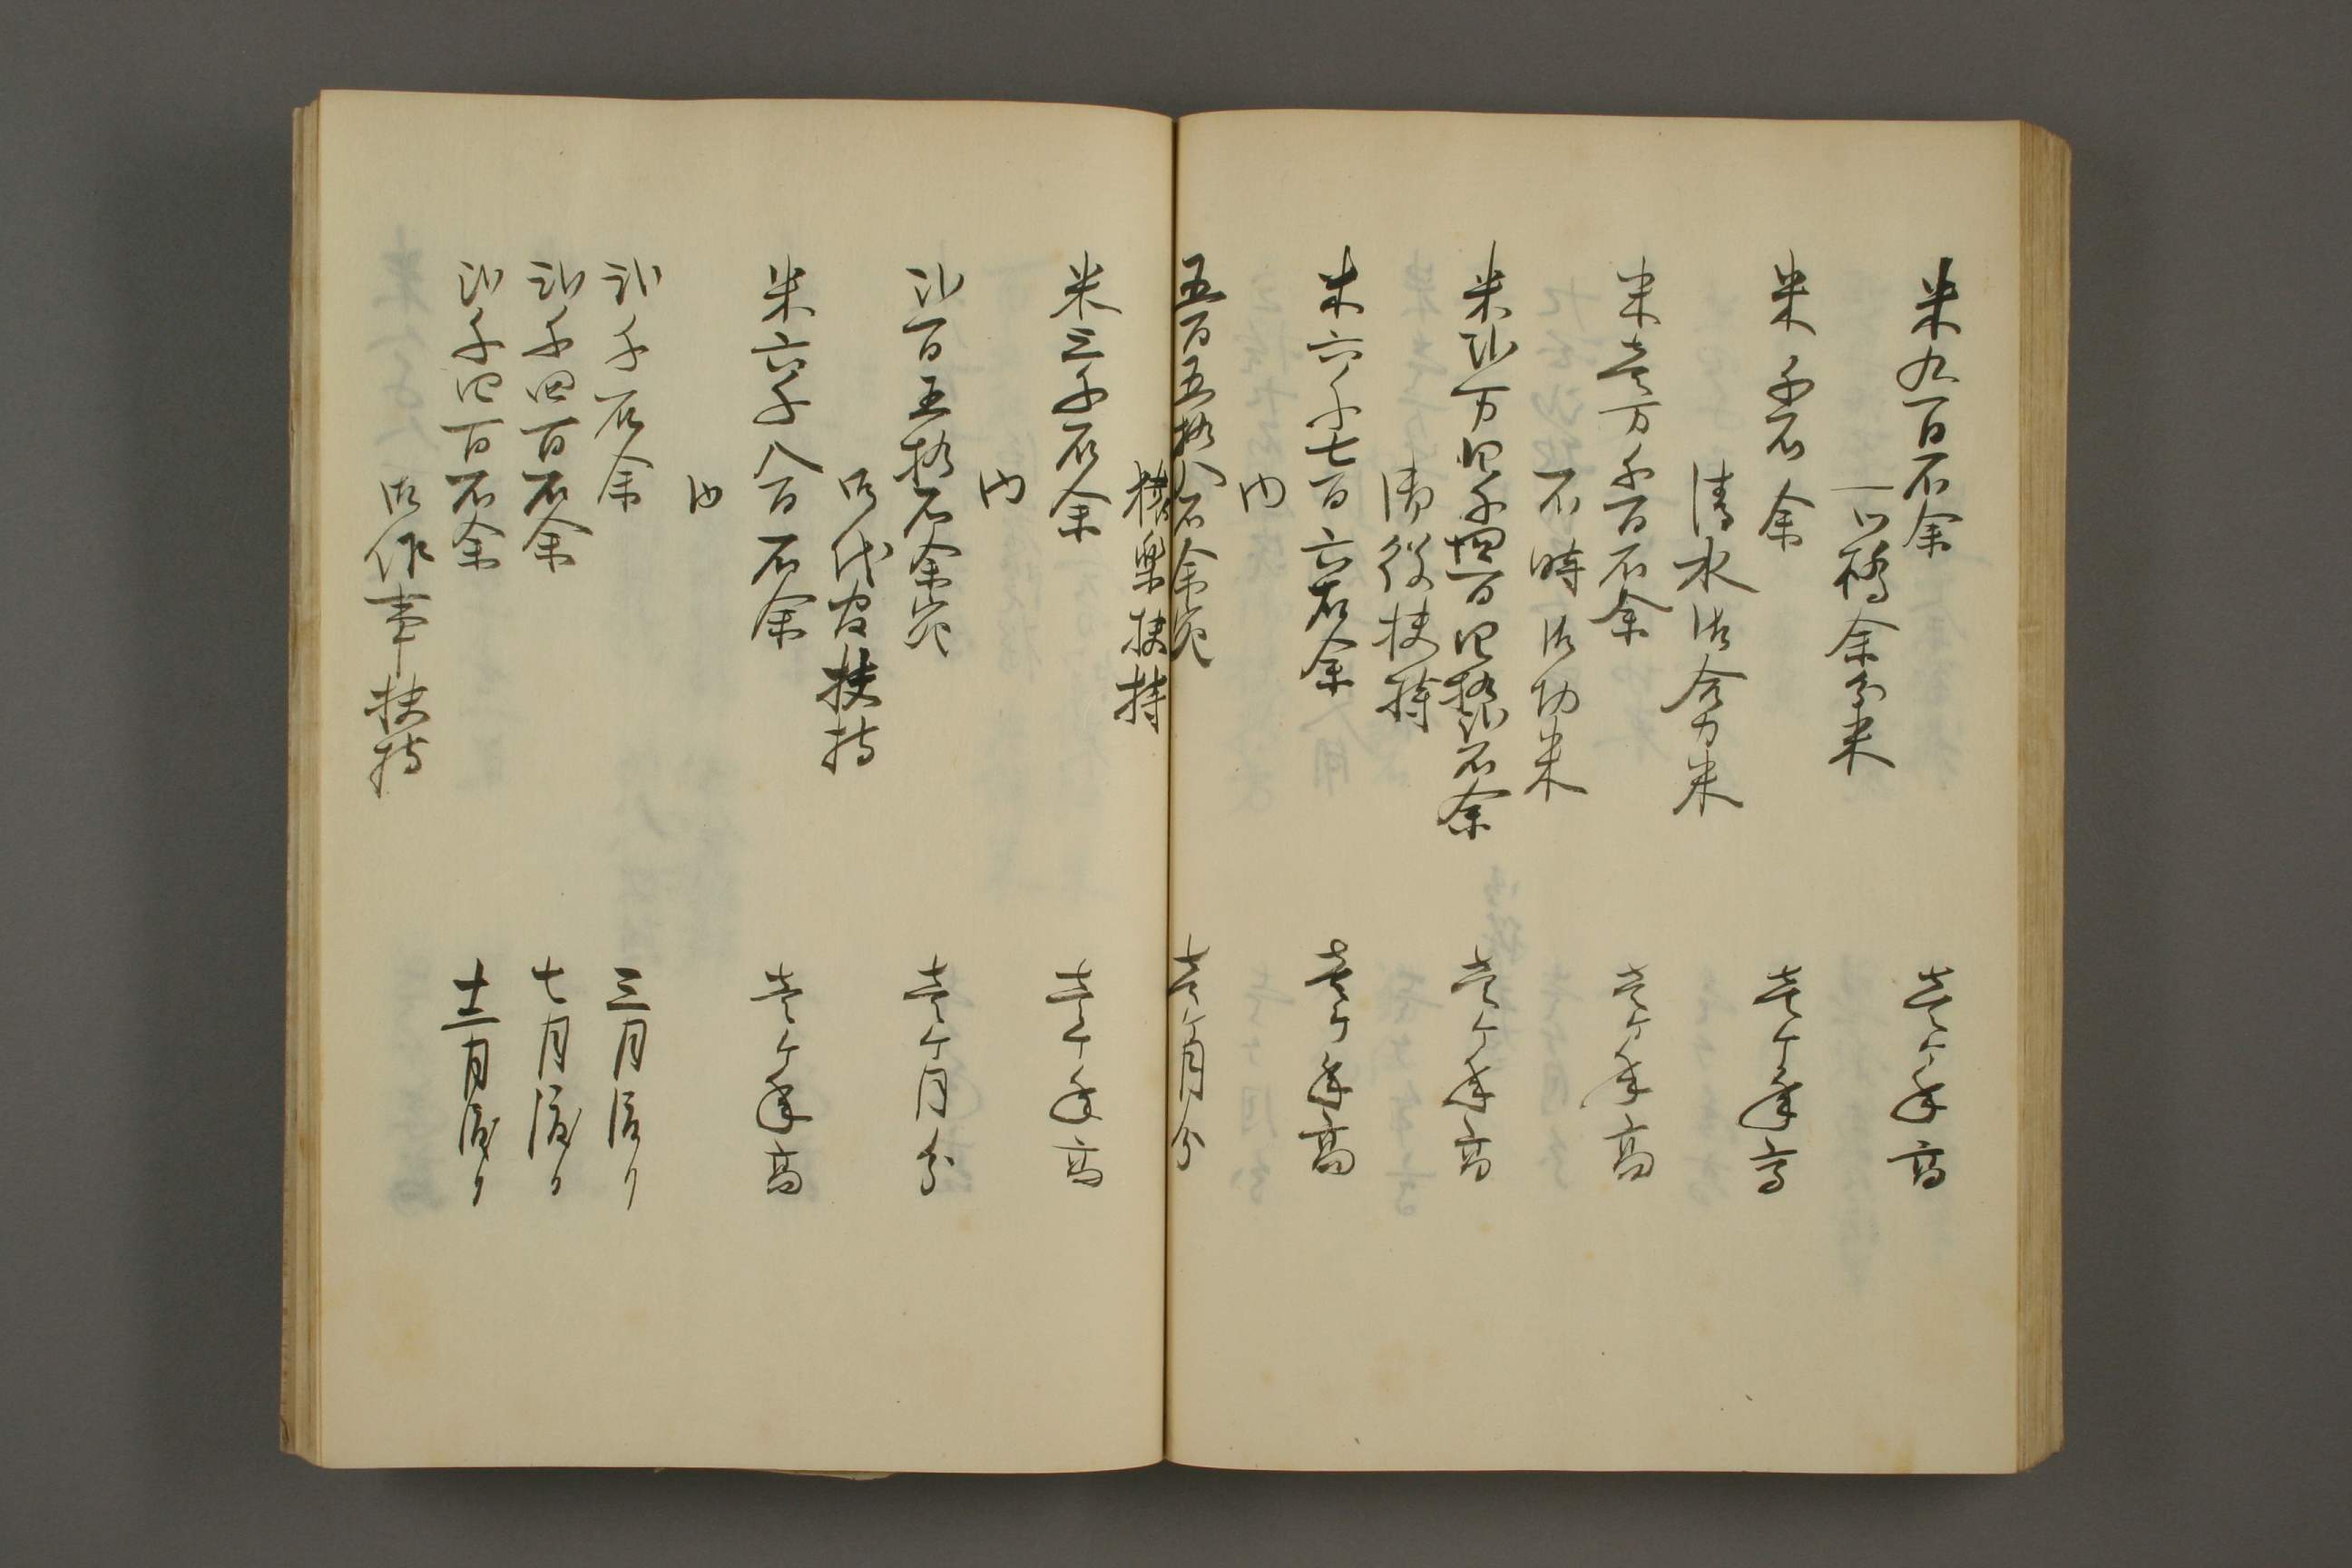 米九百石余　壱ヶ年高
一ツ橋余分米
米千石余　壱ヶ年高
清水御合力米
米壱万千百石余　壱ヶ年高
不時御切米
米弐万四千四百四拾弐石余　壱ヶ年高
御役扶持
米六千七百六石余　壱ヶ年高
内
五百五拾八石余宛　壱ヶ月分
猿楽扶持
米三千石余　壱ヶ年高
内
弐百五拾石余宛　壱ヶ月分
御代官扶持
米六千八百石余　壱ヶ年高
内
弐千石余　三月渡り
弐千四百石余　七月渡り
弐千四百石余　十二月渡り
御作事扶持